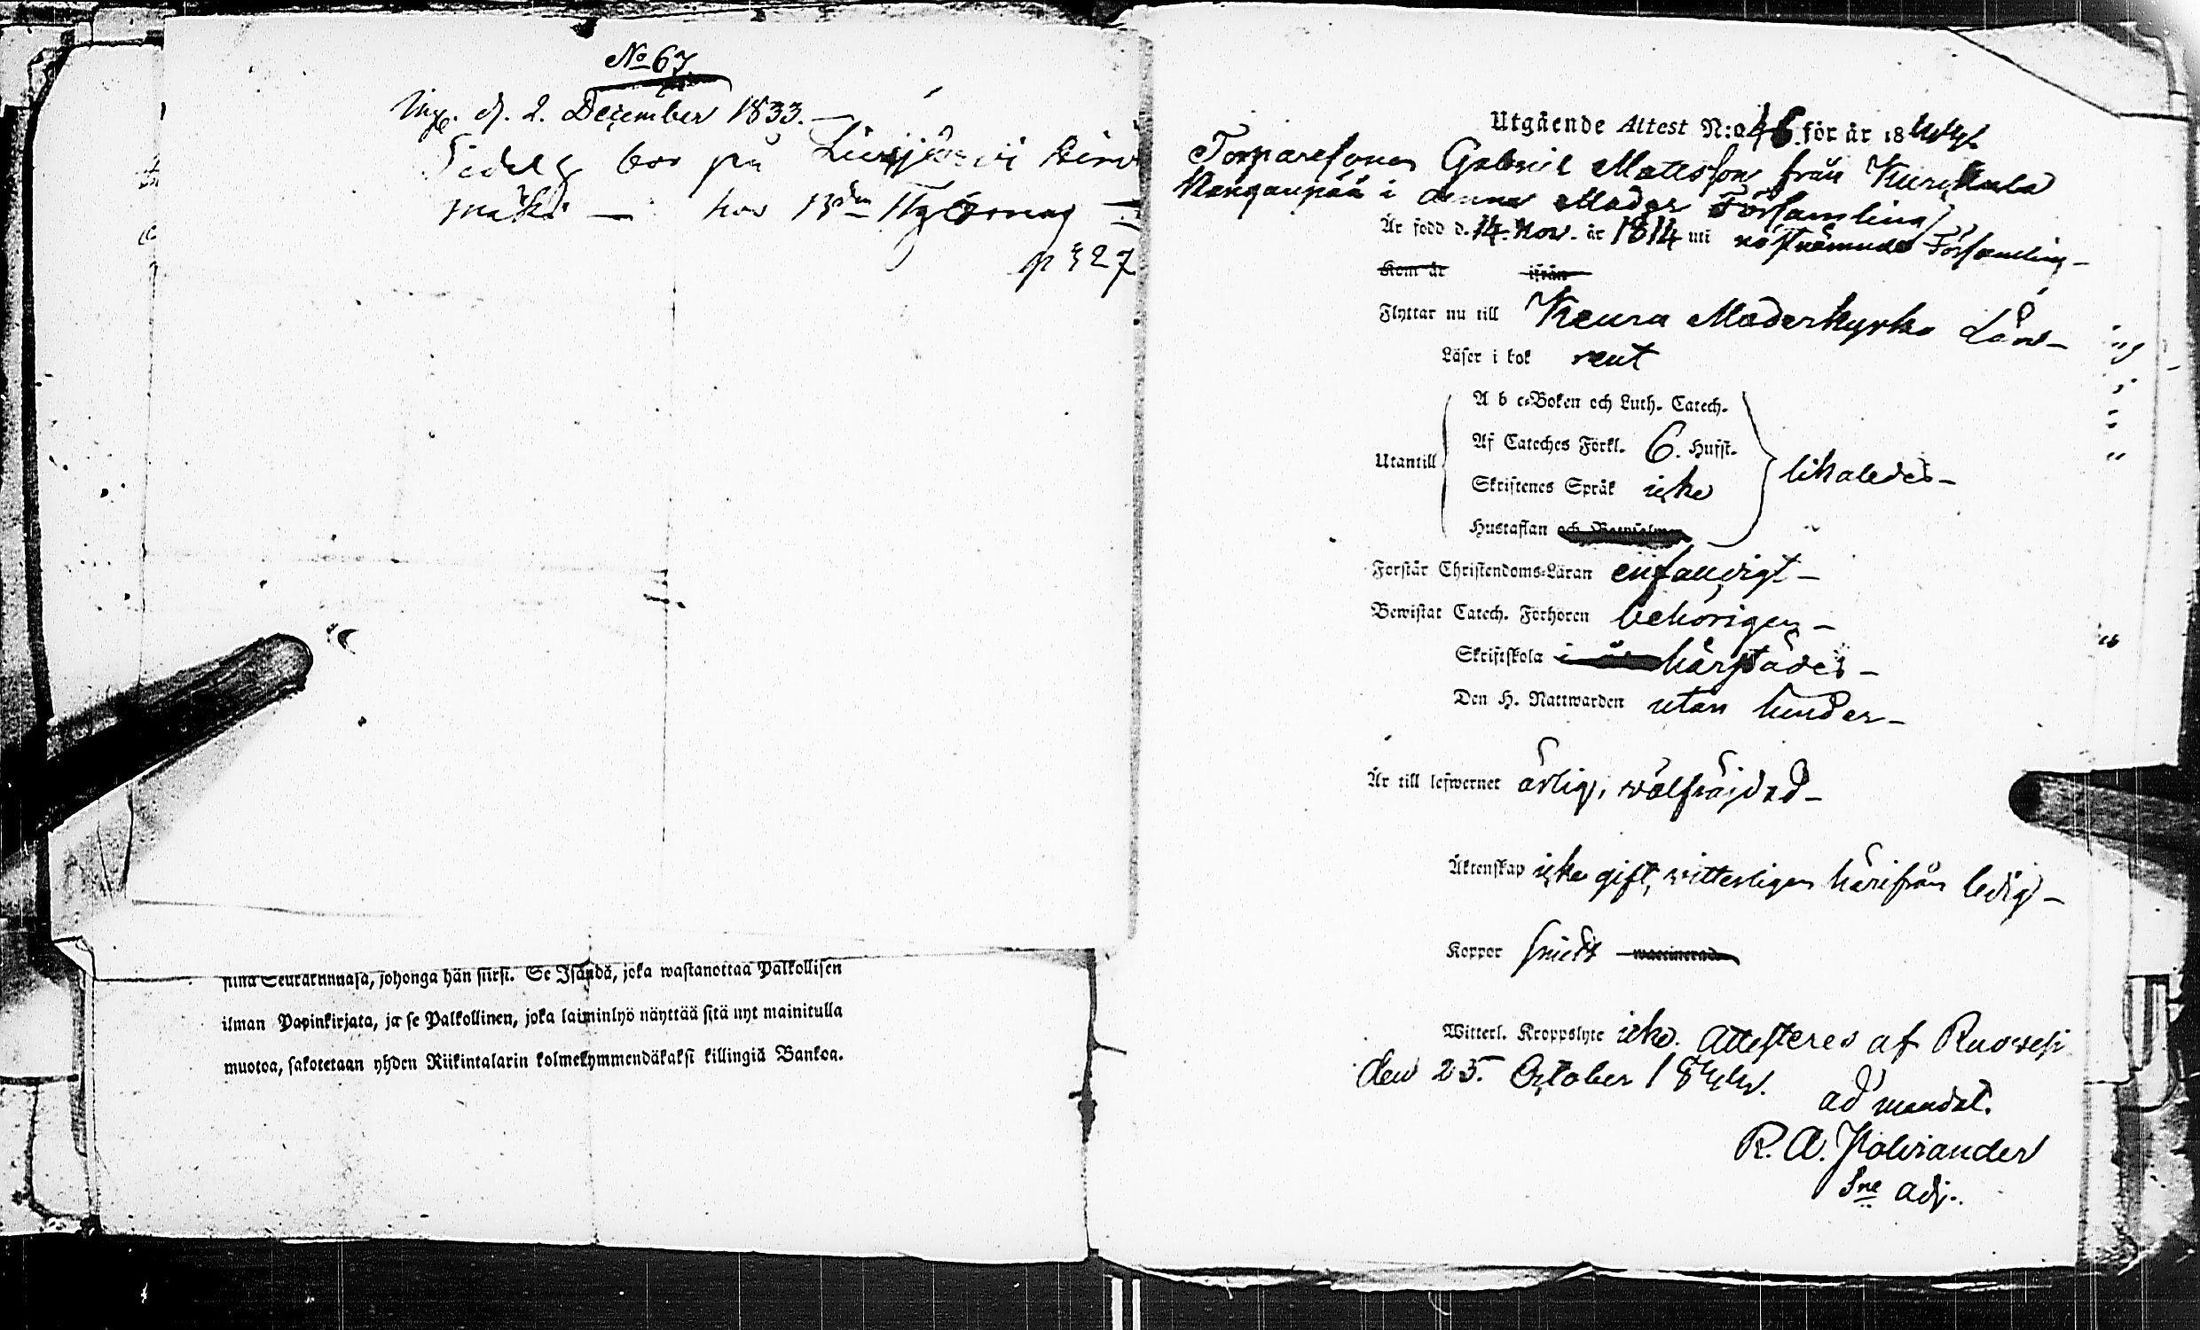 No 67
Ing. d. 2. December 1833.
bor på
hos
p 327
sinä Seurakunnasa, johonga hän siirsi. Se Isändä, joka wastanottaa Palkollisen
ilman Papinkirjata, ja se Palkollinen, joka laiminlyö näyttää sitä nyt mainitulla
muotoa, sakotetaan yhden Riikintalarin kolmekymmendäkaksi killingiä Bankoa.
Utgående Attest N:o 46 för år 1844
Torparesonen Gabriel Mattsson från
i denna Moder Församling
Är född d. 14. Nov. år 1814 uti nästnämnde Församling –
Kom år ifrån
Flyttar nu till Keuru Moderkyrko
Läser i bok rent
A b c-Boken och Luth. Catech.
Af Cateches Förkl. 6. Hufst.
Utantill
likaledes –
Skriftenes Språk icke
Hustaflan och
Förstår Christendoms-Läran enfaldigt –
Bewistat Catech. Förhören behörigen –
Skriftskola i härstädes –
Den H. Nattwarden utan hinder –
Är till lefwernet ärlig, wälfräjdad –
Äktenskap icke gift, witterligen härifrån ledig –
Koppor haft waccinerad
Witterl. Kroppslyte icke. Attesteres af Ruovesi
den 25. October 1844.
ad mandat.
R. A. Polviander
adj.